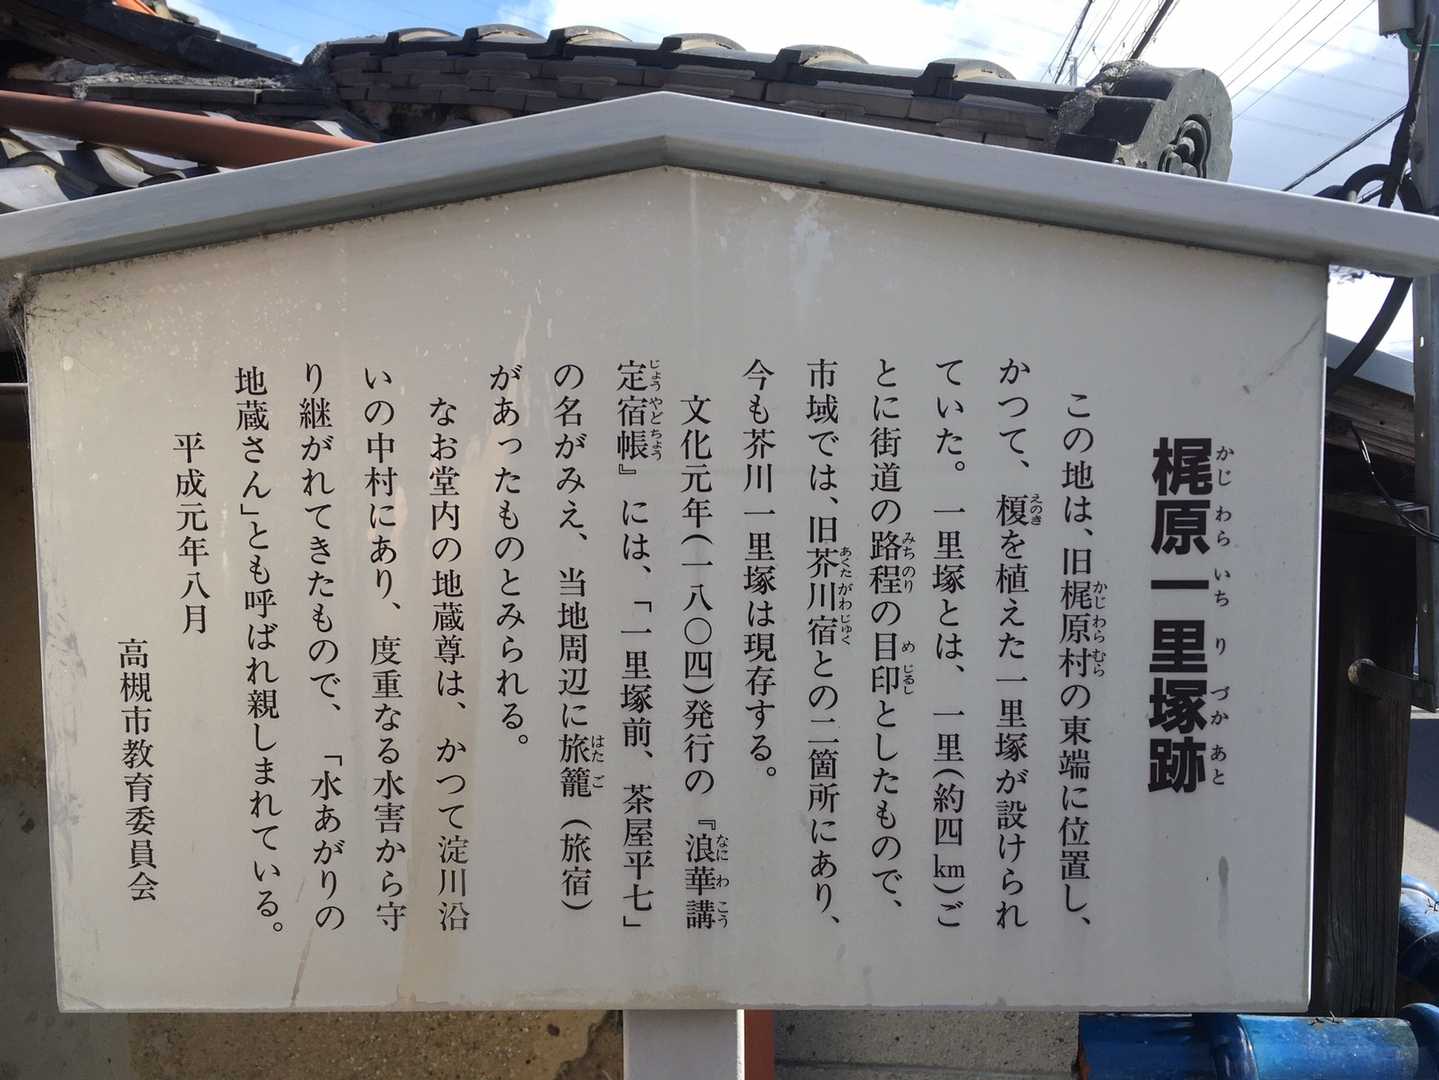 梶原一里塚跡
かじわらいちりづかあと
この地は、旧梶原村の東端に位置し、
かじわらむら
かつて、榎を植えた一里塚が設けられ
えのき
ていた。一里塚とは、一里(約四㎞)ご
とに街道の路程の目印としたもので、
みちのり めじるし
市域では、旧芥川宿との二箇所にあり、
あくたがわじゅく
今も芥川一里塚は現存する。
文化元年(一八〇四)発行の『浪華講
なにわこう
定宿帳』には、「一里塚前、茶屋平七」
じょうやどちょう
の名がみえ、当地周辺に旅籠(旅宿)
はたご
があったものとみられる。
なお堂内の地蔵尊は、かつて淀川沿
いの中村にあり、度重なる水害から守
り継がれてきたもので、「水あがりの
地蔵さん」とも呼ばれ親しまれている。
平成元年八月
高槻市教育委員会